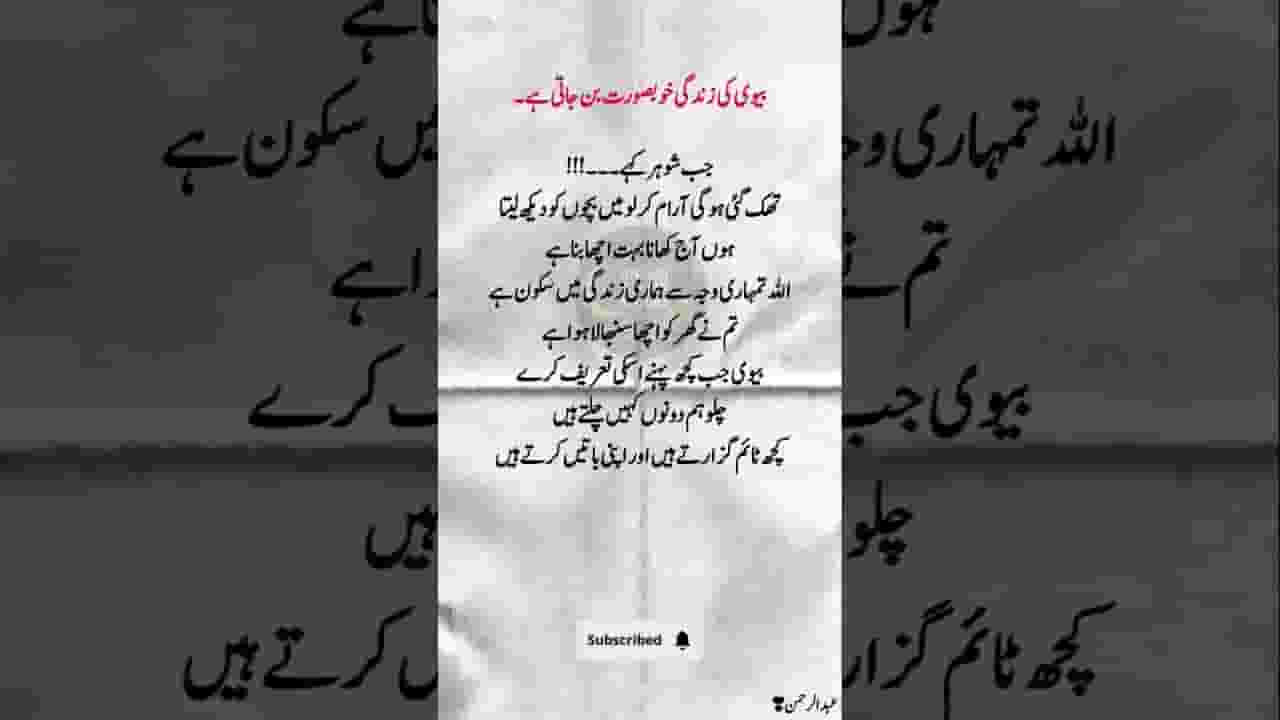 بیوی کی زندگی خوبصورت بن جاتی ہے۔
جب شوہر کہے۔۔۔!!!
تھک گئی ہو گی آرام کر لو میں بچوں کو دیکھ لیتا
ہوں آج کھانا بہت اچھا بنا ہے
اللہ تمہاری وجہ سے ہماری زندگی میں سکون ہے
تم نے گھر کو اچھا سنبھالا ہوا ہے
بیوی جب کچھ پہنے اسکی تعریف کرے
چلو ہم دونوں کہیں چلتے ہیں
کچھ ٹائم گزارتے ہیں اور اپنی باتیں کرتے ہیں
Subscribed
عبدالرحمن❣